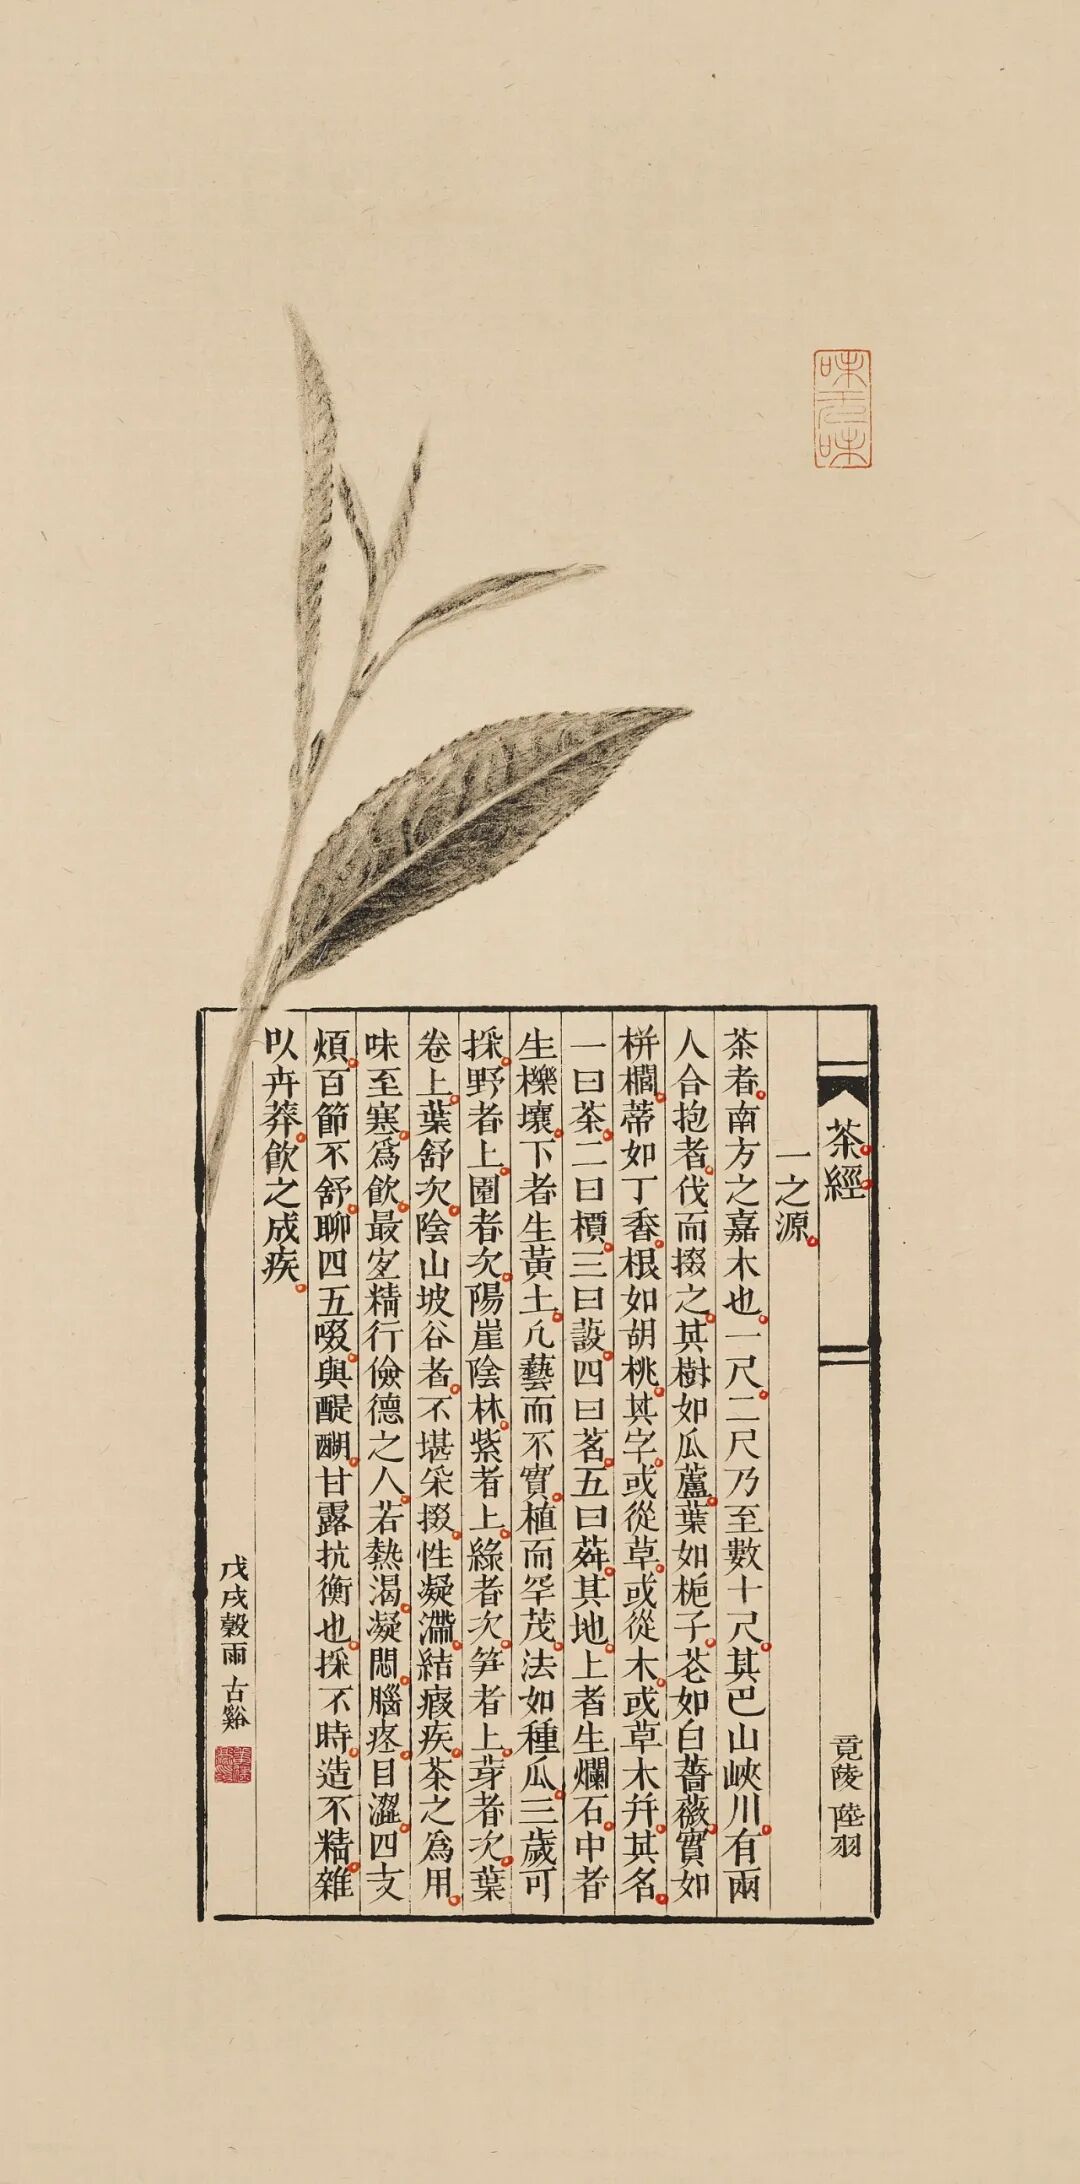 味无味
茶經
竟陵 陸羽
一之源
茶者南方之嘉木也一尺二尺乃至數十尺其巴山峽川有兩
人合抱者伐而掇之其樹如瓜蘆葉如梔子花如白薔薇實如
栟櫚蒂如丁香根如胡桃其字或從草或從木或草木幷其名
一曰茶二曰檟三曰蔎四曰茗五曰荈其地上者生爛石中者
生櫟壤下者生黃土凡藝而不實植而罕茂法如種瓜三歲可
採野者上園者次陽崖陰林紫者上綠者次笋者上芽者次葉
卷上葉舒次陰山坡谷者不堪采掇性凝滯結瘕疾茶之爲用
味至寒爲飲最宜精行儉德之人若熱渴凝悶腦疼目澀四支
煩百節不舒聊四五啜與醍醐甘露抗衡也採不時造不精雜
以卉莽飲之成疾
戊戌穀雨 古谿